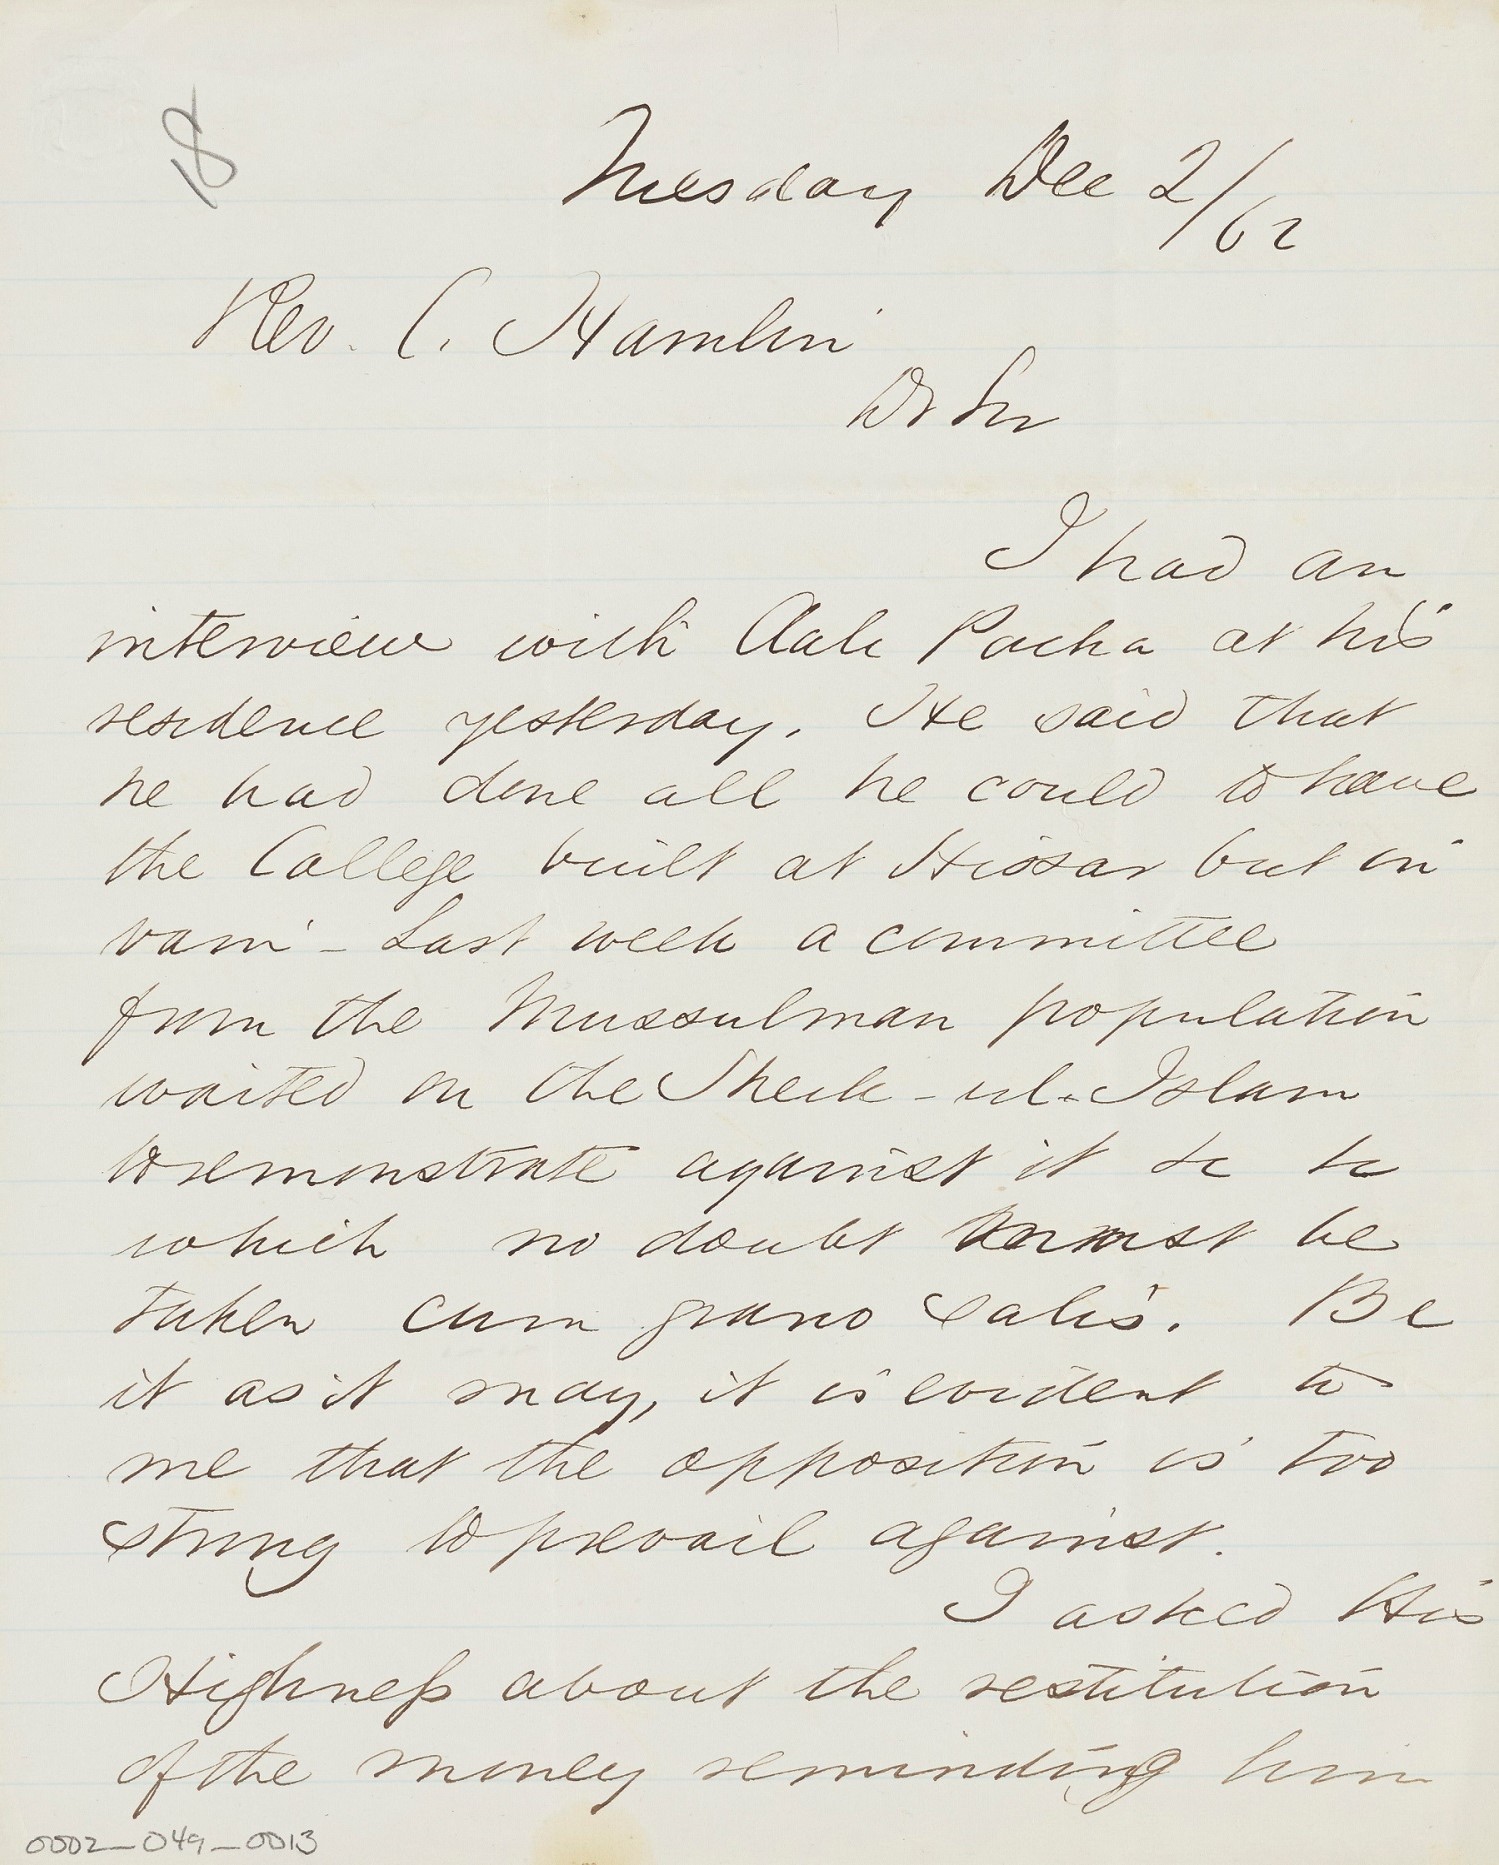 18
Tuesday Dec 2/62
Rev. C. Hamlin
Dr Sir
I had an
interview with Aali Pacha at his
residence yesterday. He said that
he had done all he could to have
the College built at Hissar but in
vain - Last week a committee
from the Mussulman population
waited on the Sheik-ul-Islam
to remonstrate against it &c &c
which no doubt must be
taken cum grano salis. Be
it as it may, it is evident to
me that the opposition is too
strong to prevail against.
I asked His
Highness about the restitution
of the money reminding him
0002-049-0013